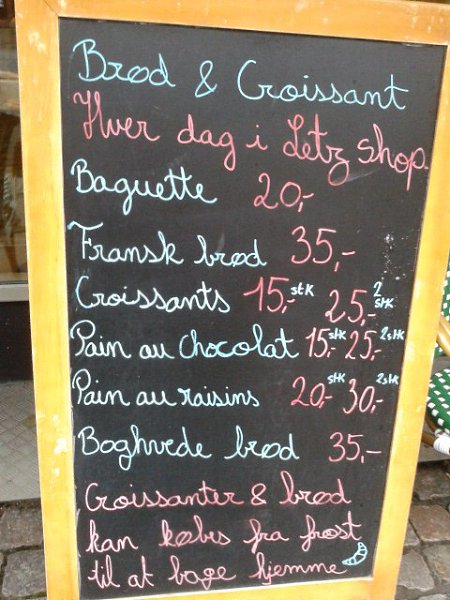 Brød & Croissant
Hver dag i Letz shop.
Baguette 20,-
Fransk brød 35,-
Croissants 15,- stk 25,- 2 stk
Pain au chocolat 15,- stk 25,- 2 stk
Pain au raisins 20,- stk 30,- 2 stk
Boghvede brød 35,-
Croissanter & brød
kan købes fra frost
til at bage hjemme